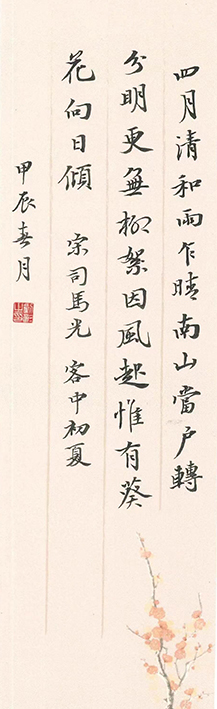 四月清和雨乍晴南山當户轉
分明更無柳絮因風起惟有葵
花向日傾 宗司馬光 客中初夏
甲辰春月